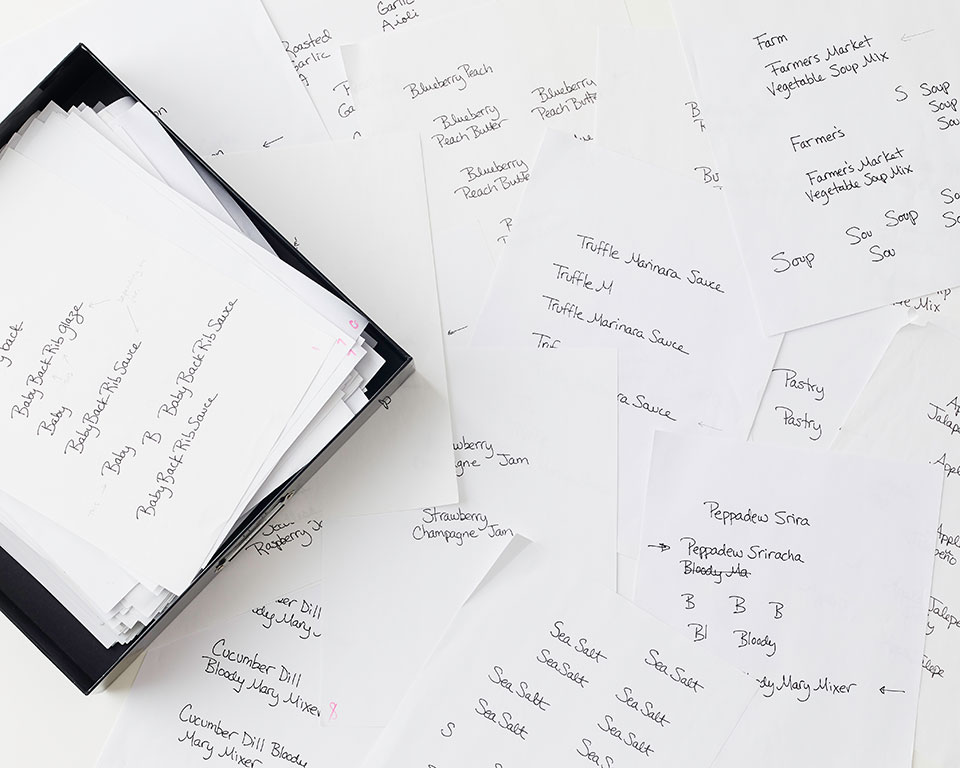 Garlic
Aioli
Roasted
Garlic
Blueberry Peach
Blueberry
Peach Butter
Blueberry
Peach Butter
Blueberry
Peach Butter
Farm
Farmers Market
Vegetable Soup Mix
S Soup
Soup
Sou
Farmer's
Farmer's Market
Vegetable Soup Mix
So
Sou Soup
So
Soup
Sou
Mix
Truffle Marinara Sauce
Truffle M
Truffle Marinara Sauce
Truf
Sauce
Pastry
Pastry
y back
Baby Back Rib Glaze
Baby
Baby Back Rib Sauce
Baby B Baby Back Rib Sauce
Baby Back Rib Sauce
Jam
Strawberry
Champagne Jam
Raspberry
Peppadew Srira
Peppadew Sriracha
Bloody Ma
B B B
Bl Bloody
Mary Mixer
Dill
Mary
Cucumber Dill
Bloody Mary Mixer
8
Cucumber Dill Bloody
Mary Mixer
Sea Salt
Sea Salt
Sea Salt
Sea Salt
Sea Salt
Sea Salt
Sea Salt
S
Sea S